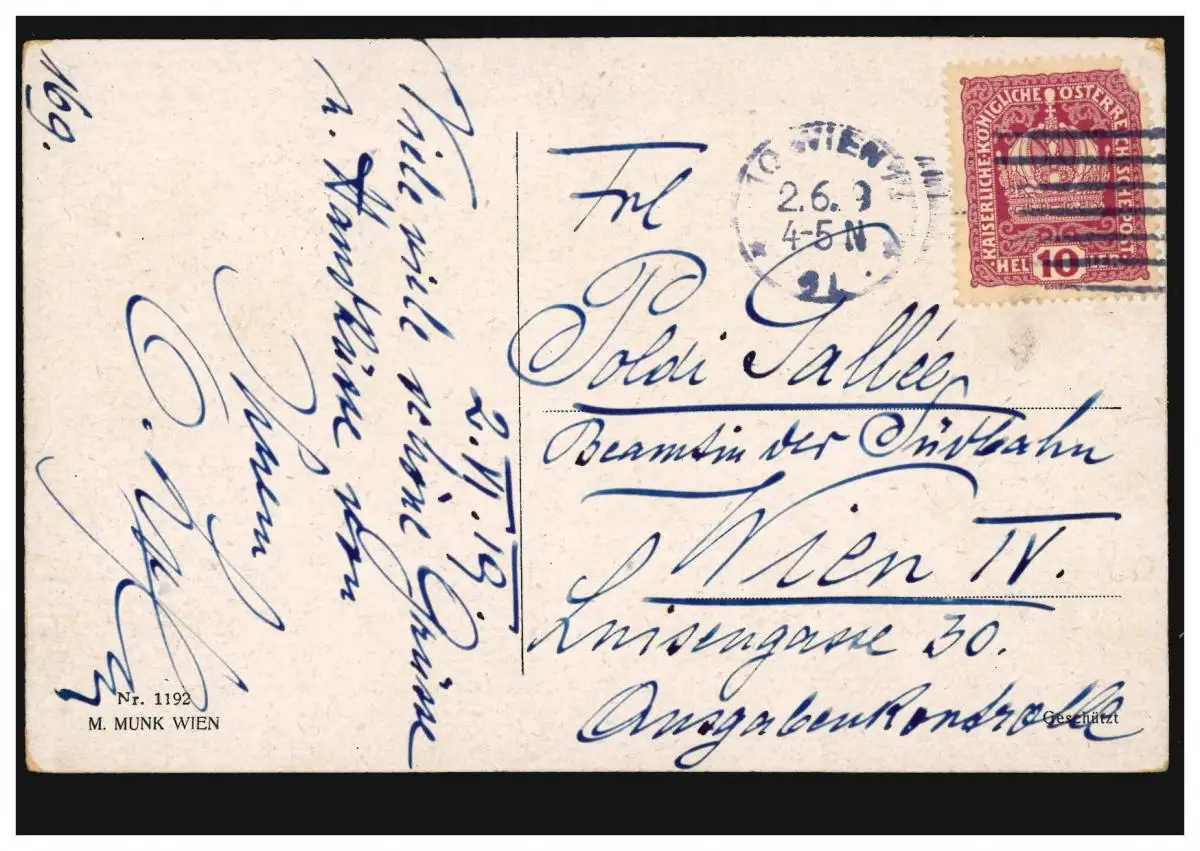 16g.
2.VI.19.
Viele viele schöne Grüsse
u. Handküsse von
Ihrem
Frl
Poldi Sallée
Beamtin der Südbahn
Wien IV.
Luisengasse 30.
Ausgabenkontrolle
WIEN
2.6. 9
4-5 N
KAISERLICHE KÖNIGLICHE ÖSTERREICHISCHE POST
10
Nr. 1192
M. MUNK WIEN
Geschützt